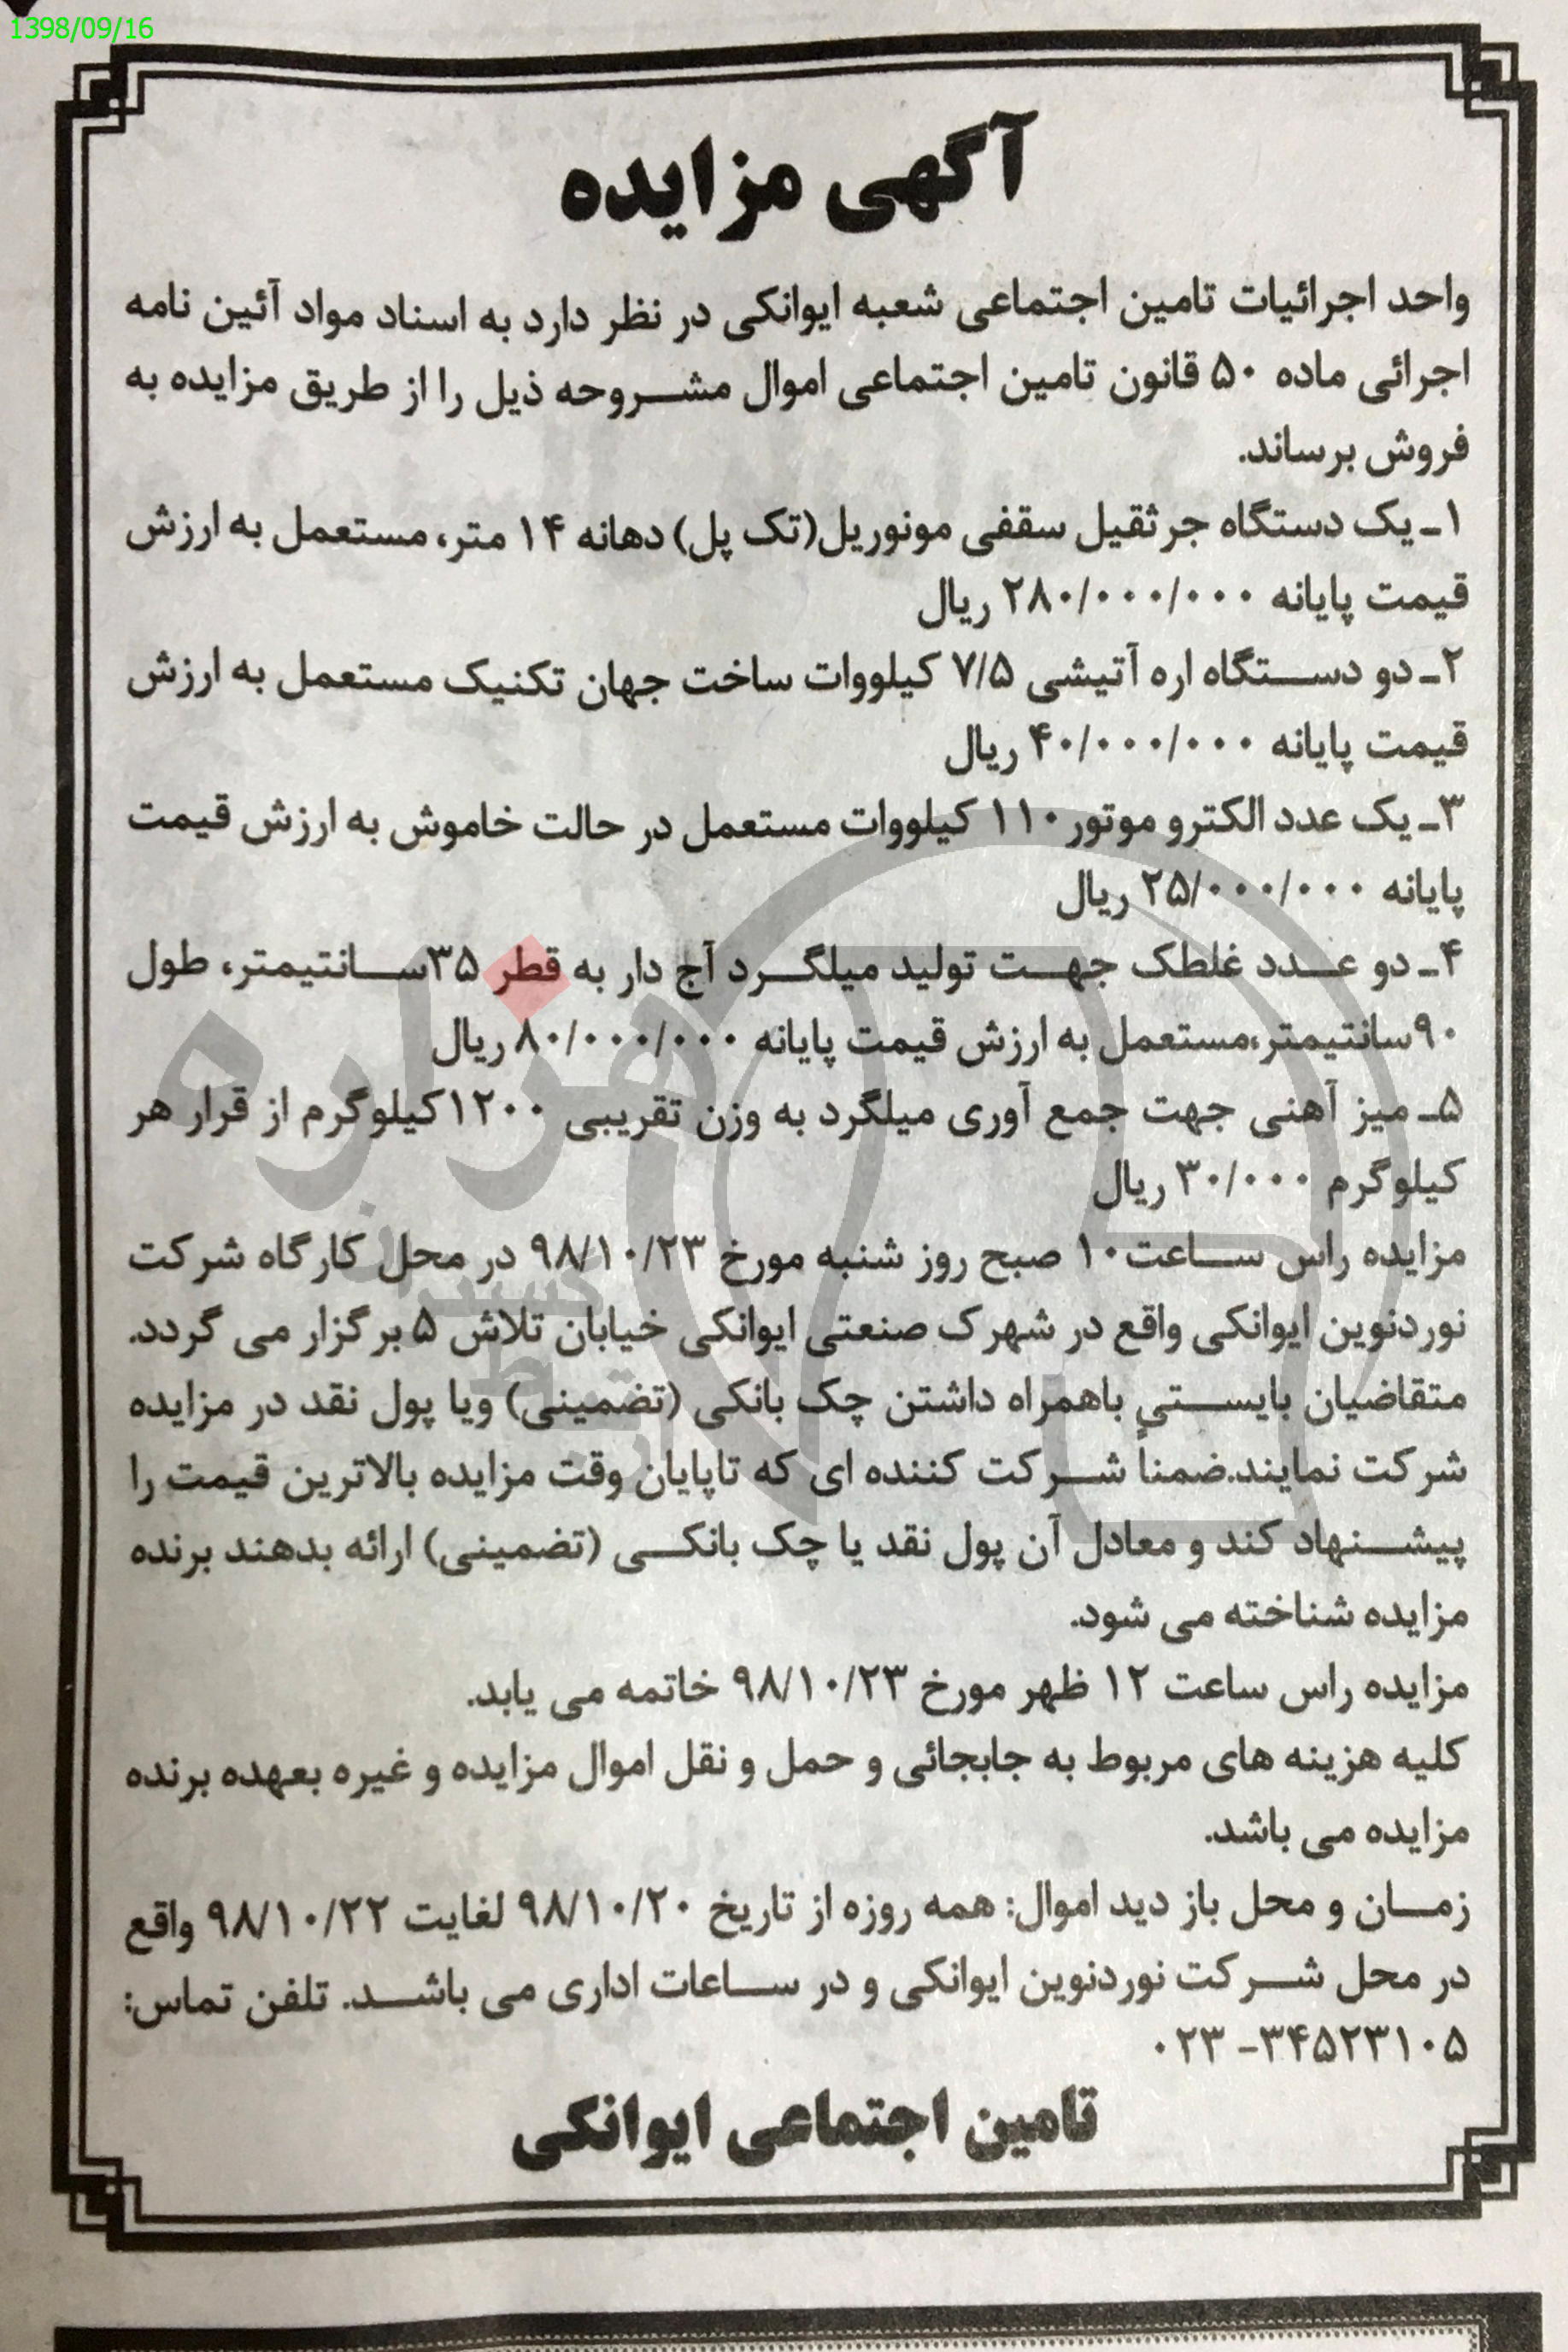 1398/09/16
آگهی مزایده
واحد اجرائیات تامین اجتماعی شعبه ایوانکی در نظر دارد به اسناد مواد آئین نامه
اجرائی ماده ۵۰ قانون تامین اجتماعی اموال مشروحه ذیل را از طریق مزایده به
فروش برساند.
۱ـ یک دستگاه جرثقیل سقفی مونوریل(تک پل) دهانه ۱۴ متر، مستعمل به ارزش
قیمت پایانه ۲۸۰/۰۰۰/۰۰۰ ریال
۲ـ دو دستگاه اره آتیشی ۷/۵ کیلووات ساخت جهان تکنیک مستعمل به ارزش
قیمت پایانه ۴۰/۰۰۰/۰۰۰ ریال
۳ـ یک عدد الکترو موتور ۱۱۰ کیلووات مستعمل در حالت خاموش به ارزش قیمت
پایانه ۲۵/۰۰۰/۰۰۰ ریال
۴ـ دو عدد غلطک جهت تولید میلگرد آج دار به قطر ۳۵سانتیمتر، طول
۹۰سانتیمتر،مستعمل به ارزش قیمت پایانه ۸۰/۰۰۰/۰۰۰ ریال
۵ـ میز آهنی جهت جمع آوری میلگرد به وزن تقریبی ۱۲۰۰کیلوگرم از قرار هر
کیلوگرم ۳۰/۰۰۰ ریال
مزایده راس ساعت۱۰ صبح روز شنبه مورخ ۹۸/۱۰/۲۳ در محل کارگاه شرکت
نوردنوین ایوانکی واقع در شهرک صنعتی ایوانکی خیابان تلاش ۵ برگزار می گردد.
متقاضیان بایستی باهمراه داشتن چک بانکی (تضمینی) ویا پول نقد در مزایده
شرکت نمایند.ضمناً شرکت کننده ای که تاپایان وقت مزایده بالاترین قیمت را
پیشنهاد کند و معادل آن پول نقد یا چک بانکی (تضمینی) ارائه بدهند برنده
مزایده شناخته می شود.
مزایده راس ساعت ۱۲ ظهر مورخ ۹۸/۱۰/۲۳ خاتمه می یابد.
کلیه هزینه های مربوط به جابجائی و حمل و نقل اموال مزایده و غیره بعهده برنده
مزایده می باشد.
زمان و محل باز دید اموال: همه روزه از تاریخ ۹۸/۱۰/۲۰ لغایت ۹۸/۱۰/۲۲ واقع
در محل شرکت نوردنوین ایوانکی و در ساعات اداری می باشد. تلفن تماس:
۰۲۳ -۳۴۵۲۳۱۰۵
تامین اجتماعی ایوانکی